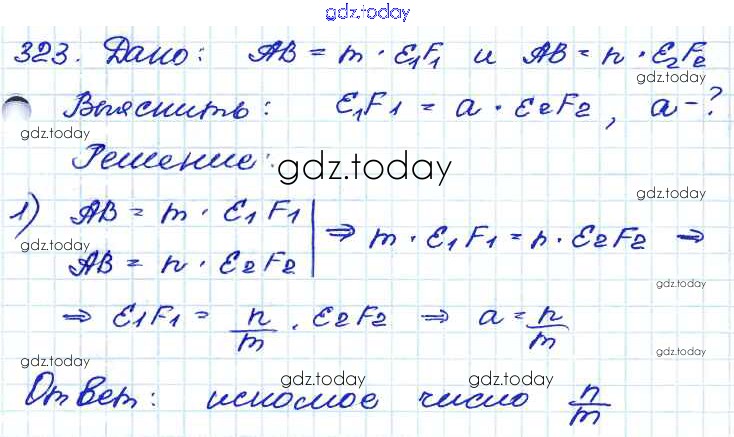 gdz.today
323. Дано: AB = m · E₁F₁ и AB = n · E₂F₂
gdz.today
Выяснить: E₁F₁ = a · E₂F₂, a - ?
gdz.today gdz.today
Решение:
gdz.today
gdz.today
1) AB = m · E₁F₁
gdz.today
AB = n · E₂F₂ | ⇒ m · E₁F₁ = n · E₂F₂ ⇒
gdz.today
⇒ E₁F₁ = n/m · E₂F₂ ⇒ a = n/m
gdz.today
gdz.today gdz.today
Ответ: искомое число n/m